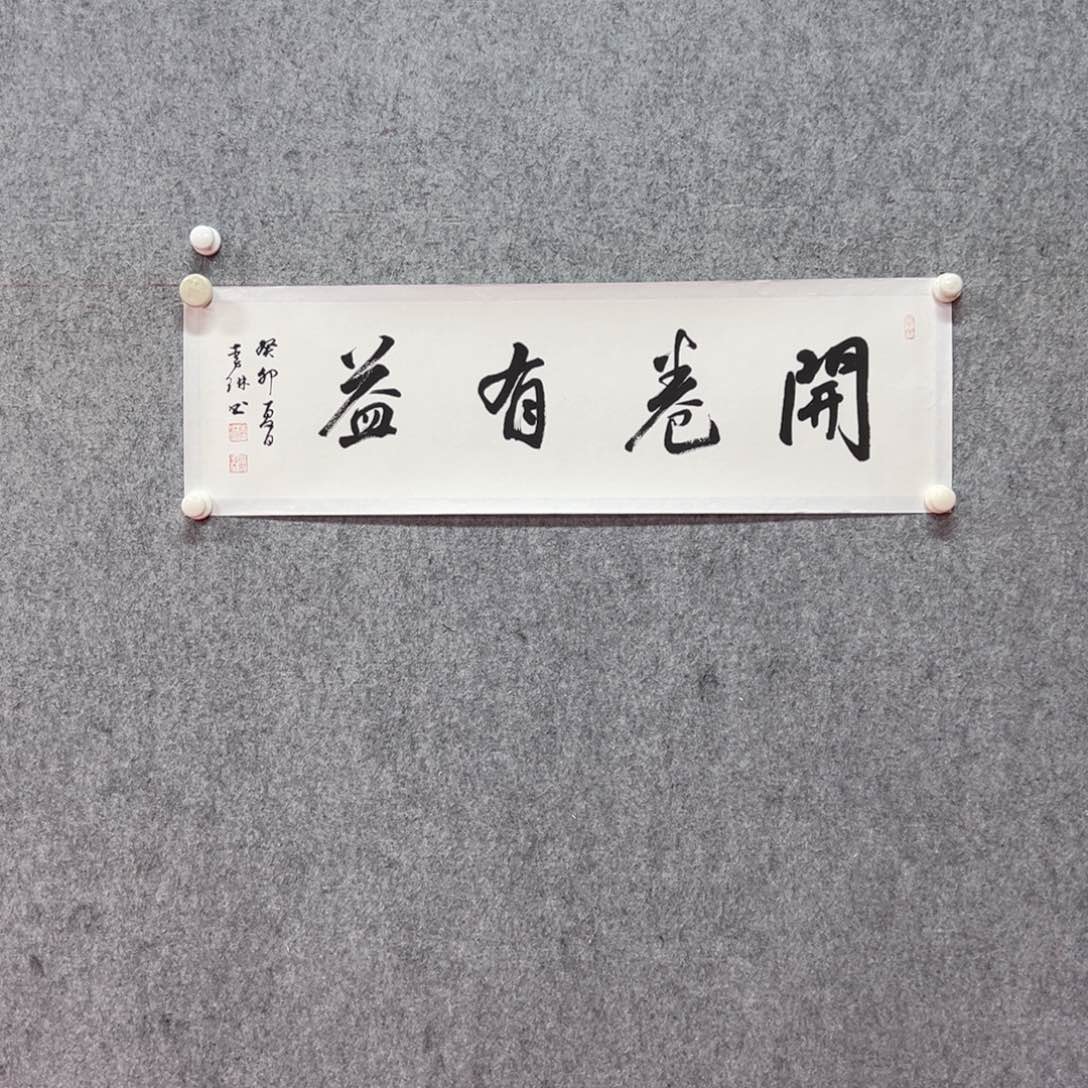 開卷有益
癸卯夏日
書